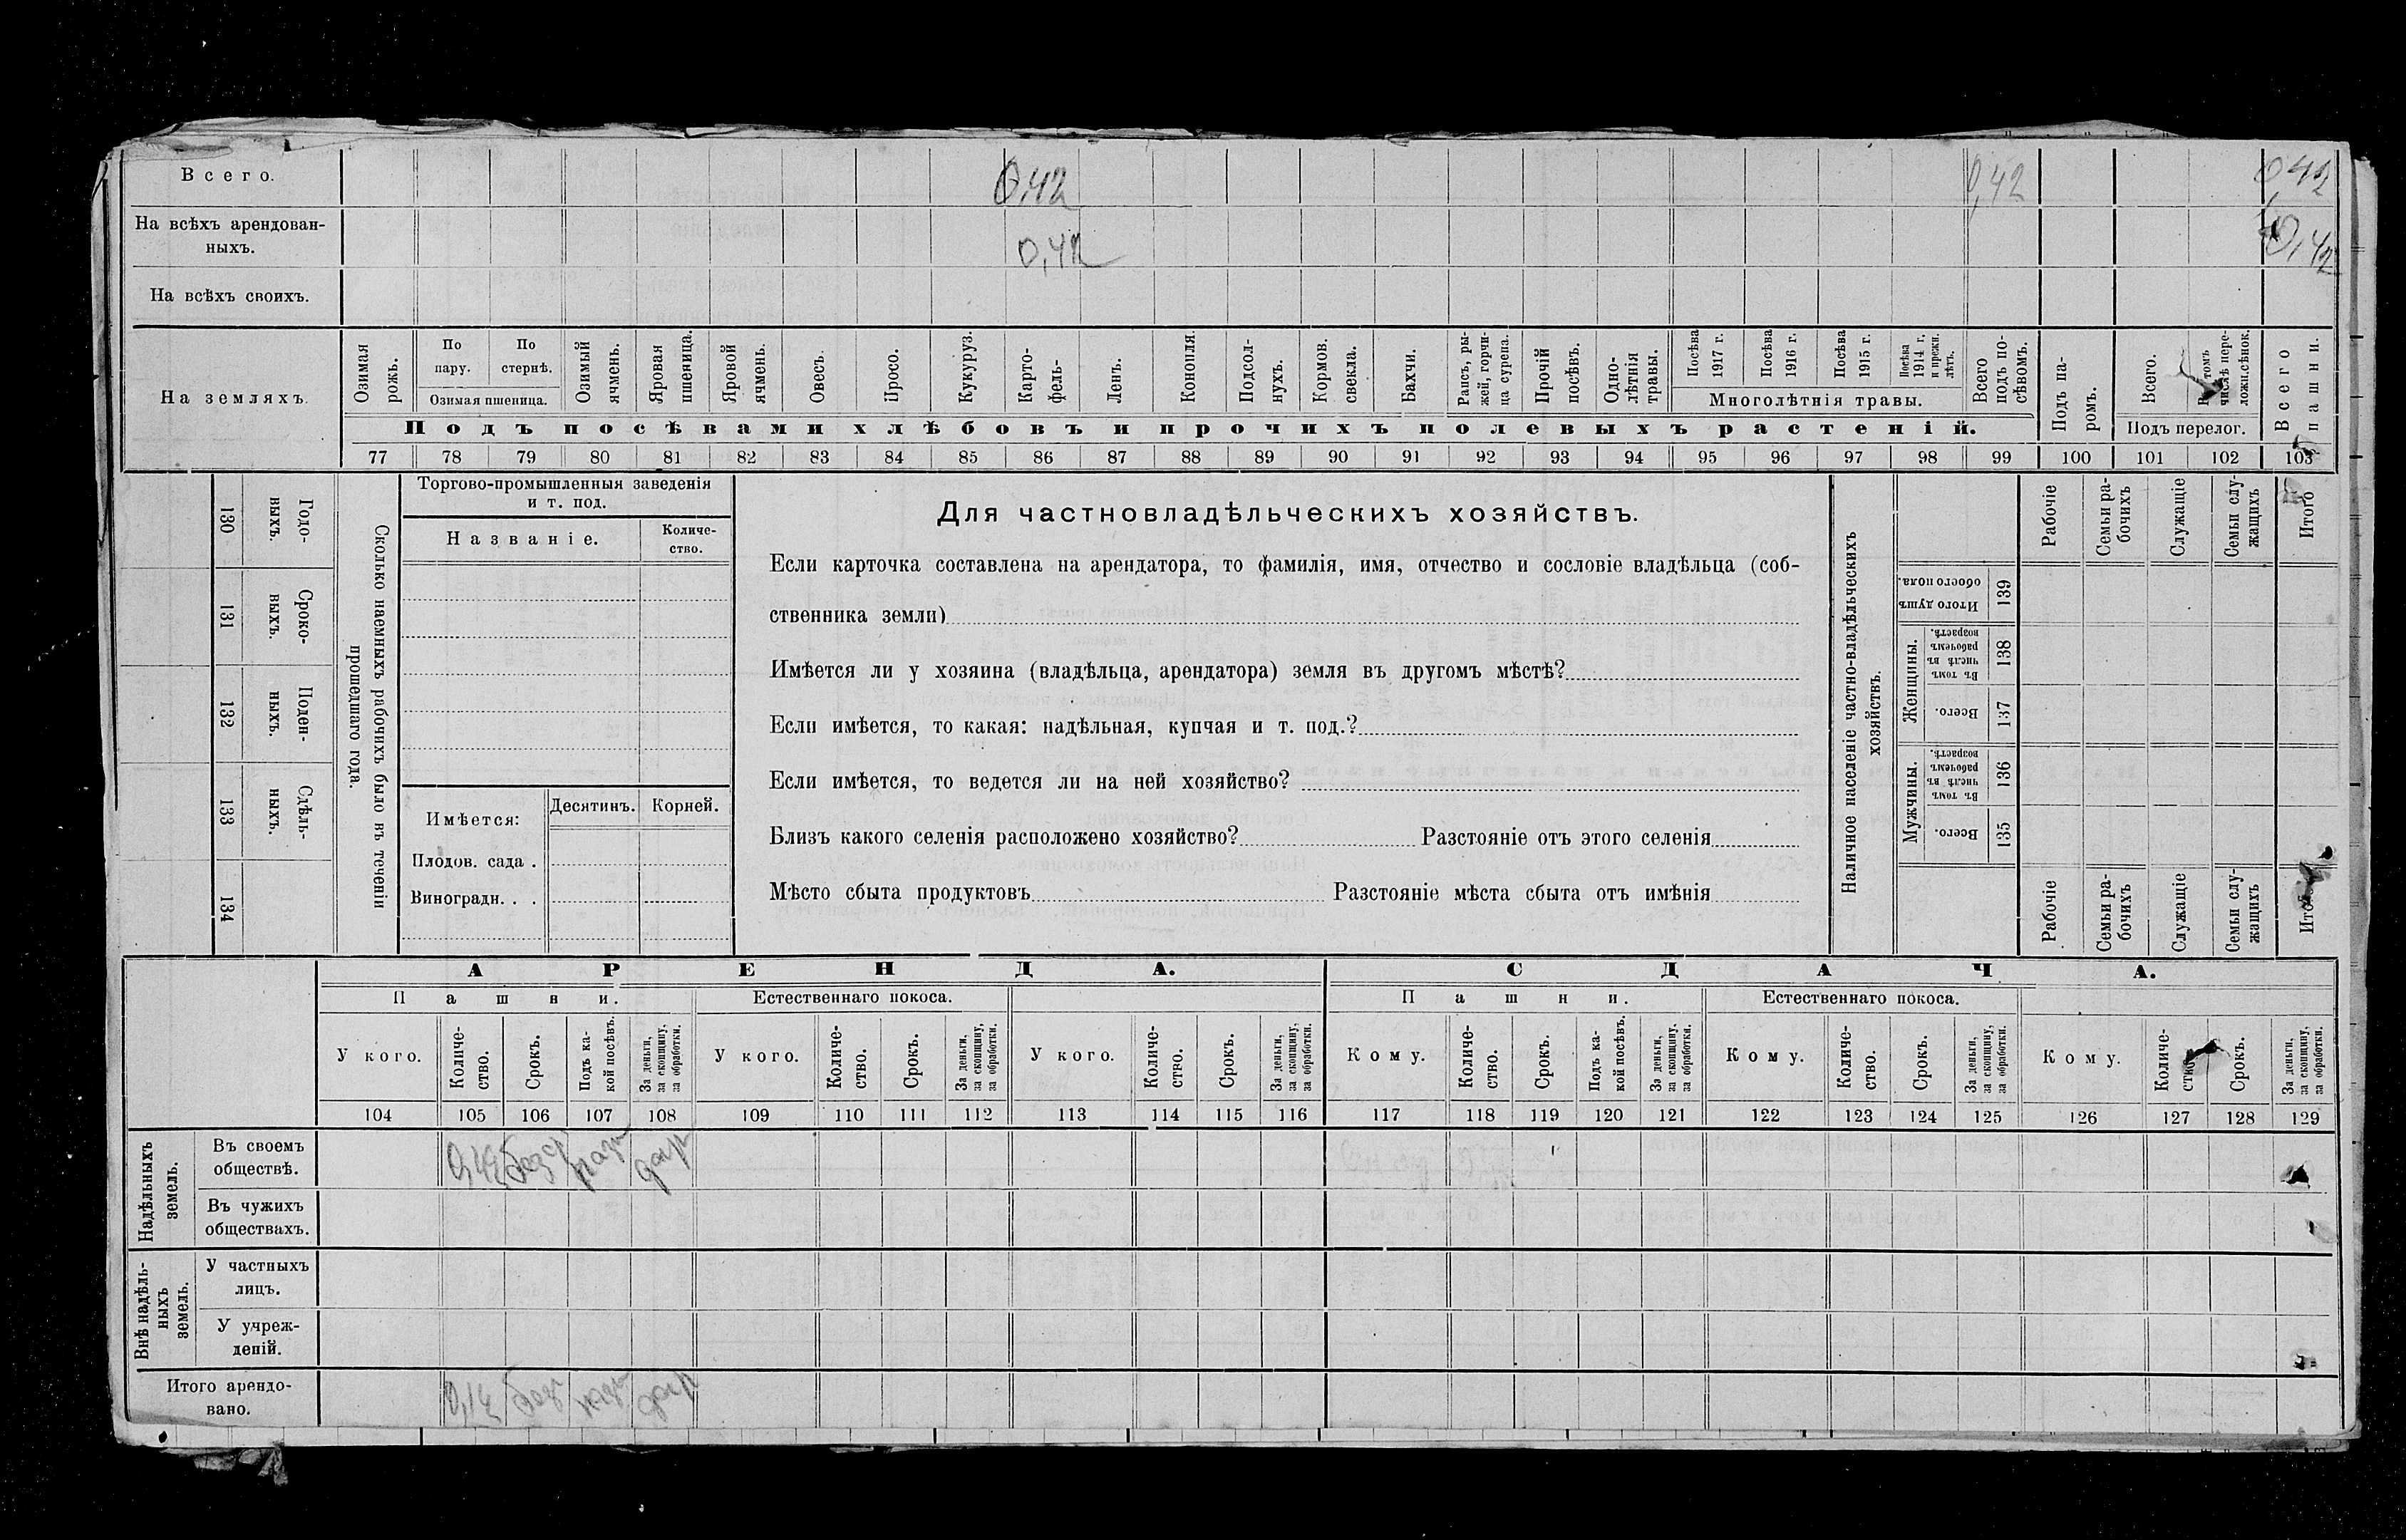 Всего.
0,42
0,42
0,42
На всѣхъ арендован-
ныхъ.
0,42
0,42
На всѣхъ своихъ.
На земляхъ.
Озимая рожь.
По пару.
По стернѣ.
Озимая пшеница.
Озимый ячмень.
Яровая пшеница.
Яровой ячмень.
Овесъ.
Просо.
Кукуруз.
Карто-
фель.
Ленъ.
Конопля.
Подсол-
нухъ.
Кормов. свекла.
Бахчи.
Рапсъ, ры-
жей, горчи-
ца сурепа.
Прочій посѣвъ.
Одно-
лѣтнія травы.
Посѣва 1917 г.
Посѣва 1916 г.
Посѣва 1915 г.
Посѣва 1914 г. и прежн. лѣтъ.
Многолѣтнія травы.
Всего подъ по-
сѣвомъ.
Подъ па-
ромъ.
Всего.
В томъ числѣ пере-
лож. сѣнок.
Подъ перелог.
Всего пашни.
Подъ посѣвами хлѣбовъ и прочихъ полевыхъ растеній.
77 78 79 80 81 82 83 84 85 86 87 88 89 90 91 92 93 94 95 96 97 98 99 100 101 102 103
130 Годо-
выхъ.
131 Сроко-
выхъ.
132 Поден-
ныхъ.
133 Сдѣль-
ныхъ.
134
Сколько наемныхъ рабочихъ было въ теченіи
прошедшаго года.
Торгово-промышленныя заведенія
и т. под.
Названіе.
Количе-
ство.
Имѣется:
Десятинъ.
Корней.
Плодов. сада .
Виноградн. . .
Для частновладѣльческихъ хозяйствъ.
Если карточка составлена на арендатора, то фамилія, имя, отчество и сословіе владѣльца (соб-
ственника земли)
Имѣется ли у хозяина (владѣльца, арендатора) земля въ другомъ мѣстѣ?
Если имѣется, то какая: надѣльная, купчая и т. под.?
Если имѣется, то ведется ли на ней хозяйство?
Близъ какого селенія расположено хозяйство? Разстояніе отъ этого селенія
Мѣсто сбыта продуктовъ Разстояніе мѣста сбыта отъ имѣнія
Наличное населеніе частно-владѣльческихъ
хозяйствъ.
Рабочіе
Семьи ра-
бочихъ
Служащіе
Семьи слу-
жащихъ
Итого
Итого душъ обоего пола. 139
Женщины.
Въ томъ числѣ въ рабочемъ возрастѣ. 138
Всего. 137
Мужчины.
Въ томъ числѣ въ рабочемъ возрастѣ. 136
Всего. 135
Рабочіе
Семьи ра-
бочихъ
Служащіе
Семьи слу-
жащихъ
АРЕНДА.
СДАЧА.
Пашни.
Естественнаго покоса.
Пашни.
Естественнаго покоса.
У кого.
Количе-
ство.
Срокъ.
Подъ ка-
кой посѣвъ.
За деньги, за скопщину, за обработки.
У кого.
Количе-
ство.
Срокъ.
За деньги, за скопщину, за обработки.
У кого.
Количе-
ство.
Срокъ.
За деньги, за скопщину, за обработки.
Кому.
Количе-
ство.
Срокъ.
Подъ ка-
кой посѣвъ.
За деньги, за скопщину, за обработки.
Кому.
Количе-
ство.
Срокъ.
За деньги, за скопщину, за обработки.
Кому.
Количе-
ство.
Срокъ.
За деньги, за скопщину, за обработки.
104 105 106 107 108 109 110 111 112 113 114 115 116 117 118 119 120 121 122 123 124 125 126 127 128 129
Надѣльныхъ
земель.
Въ своемъ
обществѣ.
Въ чужихъ
обществахъ.
Внѣ надѣль-
ныхъ
земель.
У частныхъ
лицъ.
У учреж-
деній.
Итого арендо-
вано.